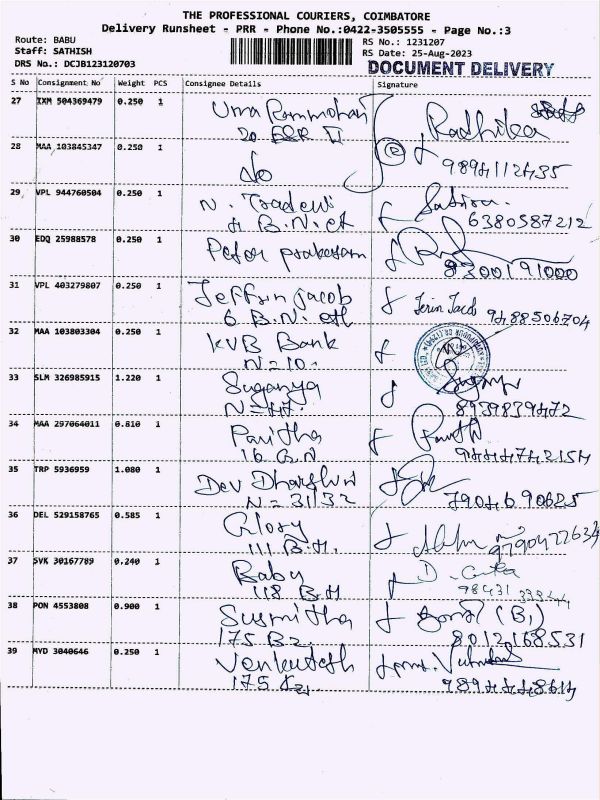 THE PROFESSIONAL COURIERS, COIMBATORE
Delivery Runsheet - PRR - Phone No.:0422-3505555 - Page No.:3
Route: BABU
RS No.: 1231207
Staff: SATHISH
RS Date: 25-Aug-2023
DRS No.: DCJB123120703
DOCUMENT DELIVERY
S No Consignment No Weight PCS Consignee Details Signature
27 IXM 504369479 0.250 1 Uma Rammohan Radhika
28 MAA 103845347 0.250 1 No
29 VPL 944760504 0.250 1 N. Traders
6380587212
30 EDQ 25988578 0.250 1 Peter prakasam
8300191000
31 VPL 403279807 0.250 1 Jeffrin jacob Jerin Jacob 9488506704
6 B.N.
32 MAA 103803304 0.250 1 KVB Bank
N=10.
33 SLM 326985915 1.220 1 Suganya
N=47. 8939839472
34 MAA 297064011 0.810 1 Pavitha
16 G.N 9444743154
35 TRP 5936959 1.080 1 Dev Dharshni
N=31/32 7904690625
36 DEL 529158765 0.585 1 Glory
111 B.H. 9790477634
37 SVK 30167789 0.240 1 Babu
118 B.H 98431
38 PON 4553808 0.900 1 Susmitha
175 B2. 8012168531
39 MYD 3040646 0.250 1 Venkatesh
175